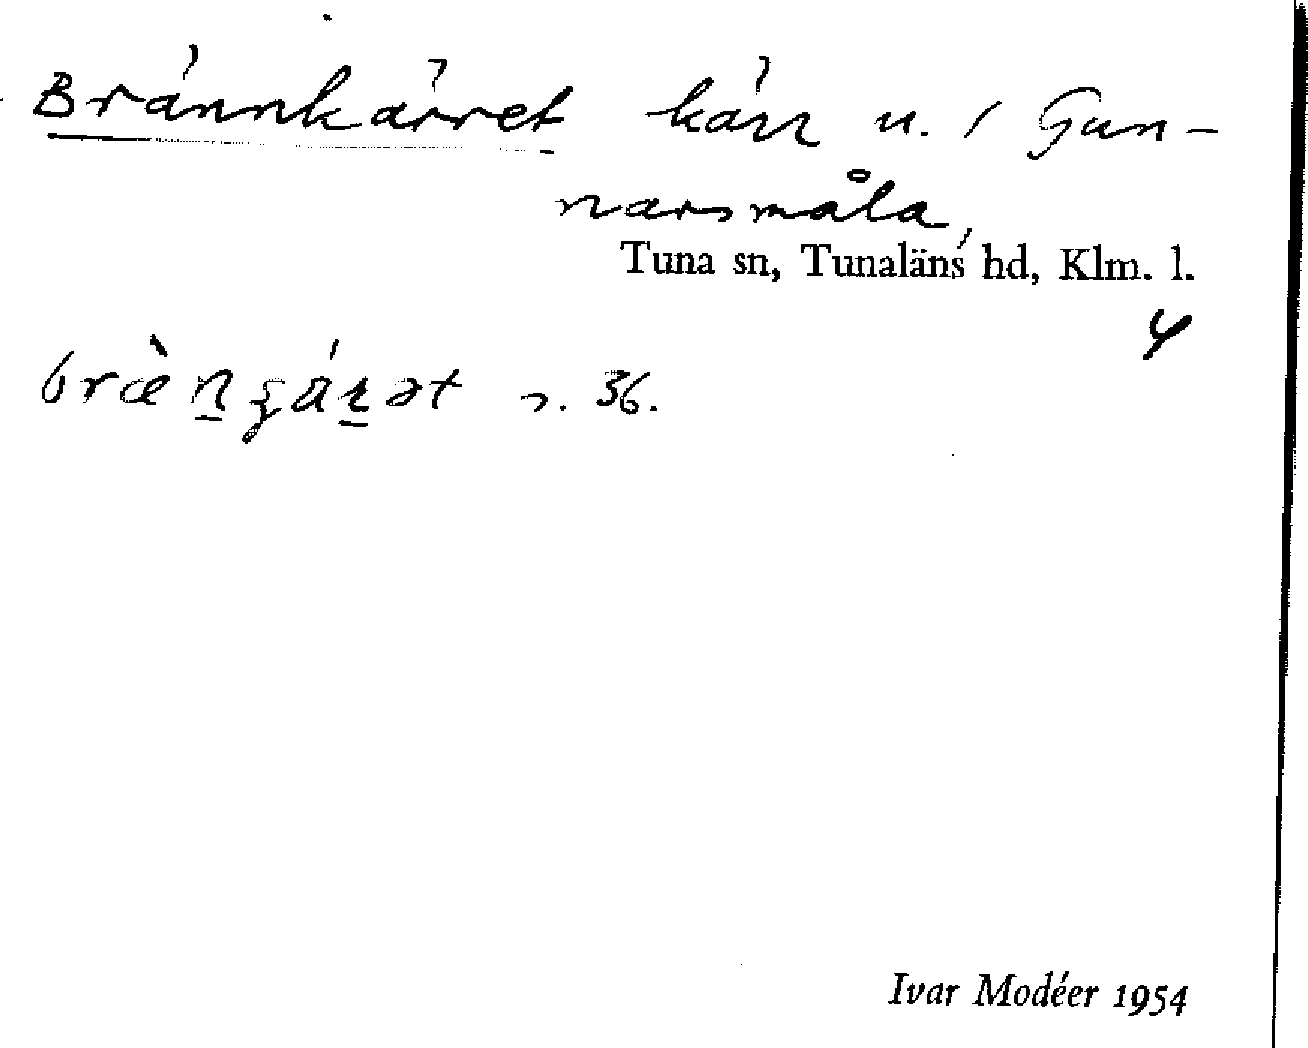 Brännkärret kärr u. / Gun-
narsmåla,
Tuna sn, Tunaläns hd, Klm. l.
s. 36.
Ivar Modéer 1954